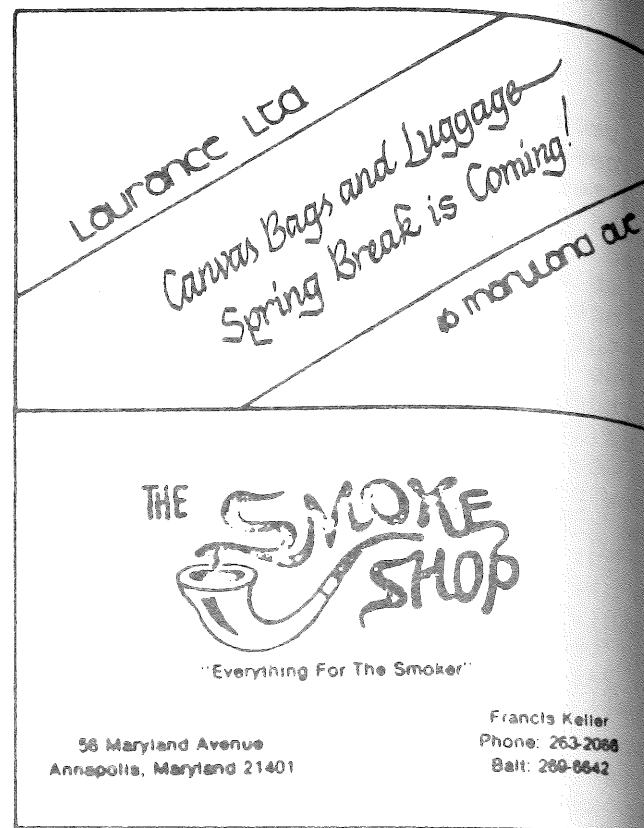 Laurance Ltd
Canvas Bags and Luggage
Spring Break is Coming!
maryland ave
THE SMOKE
SHOP
"Everything For The Smoker"
56 Maryland Avenue
Annapolis, Maryland 21401
Francis Keller
Phone: 263-2066
Balt: 269-6642